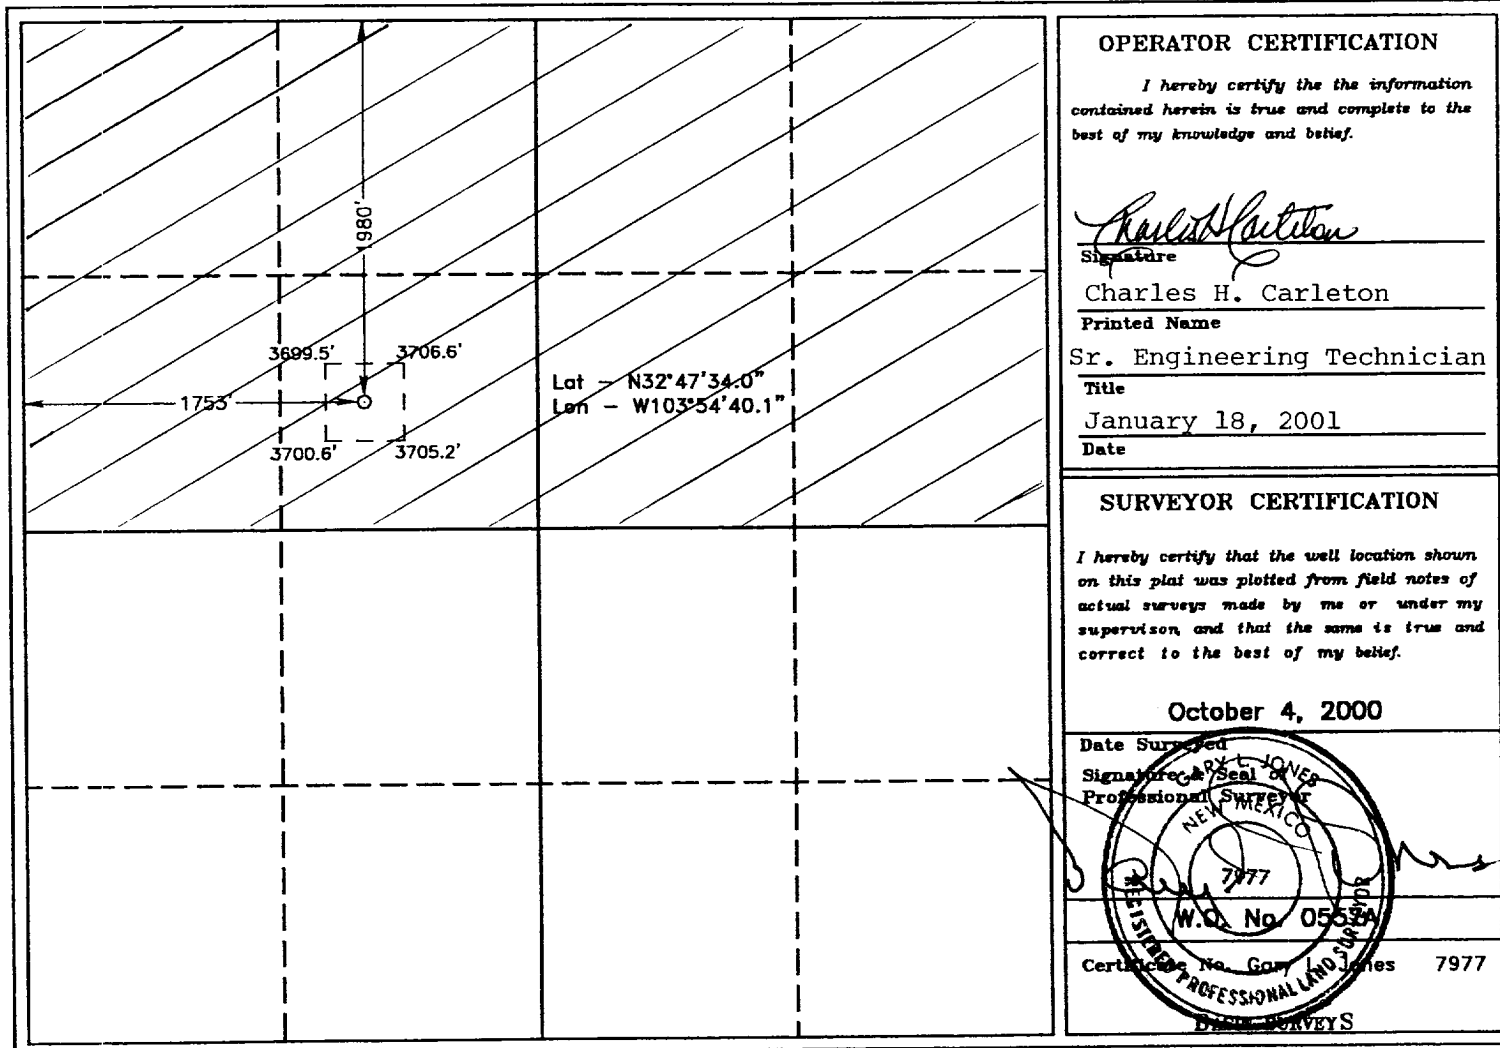 1980'
3699.5'
3706.6'
1753'
3700.6'
3705.2'
Lat - N32°47'34.0"
Lon - W103°54'40.1"
OPERATOR CERTIFICATION
I hereby certify the the information
contained herein is true and complete to the
best of my knowledge and belief.
Charles H Carleton
Signature
Charles H. Carleton
Printed Name
Sr. Engineering Technician
Title
January 18, 2001
Date
SURVEYOR CERTIFICATION
I hereby certify that the well location shown
on this plat was plotted from field notes of
actual surveys made by me or under my
supervison, and that the same is true and
correct to the best of my belief.
October 4, 2000
Date Surveyed
Signature & Seal of
Professional Surveyor
GARY L. JONES
NEW MEXICO
7977
REGISTERED PROFESSIONAL LAND SURVEYOR
W.O. No.
Certificate No. Gary L. Jones 7977
SURVEYS